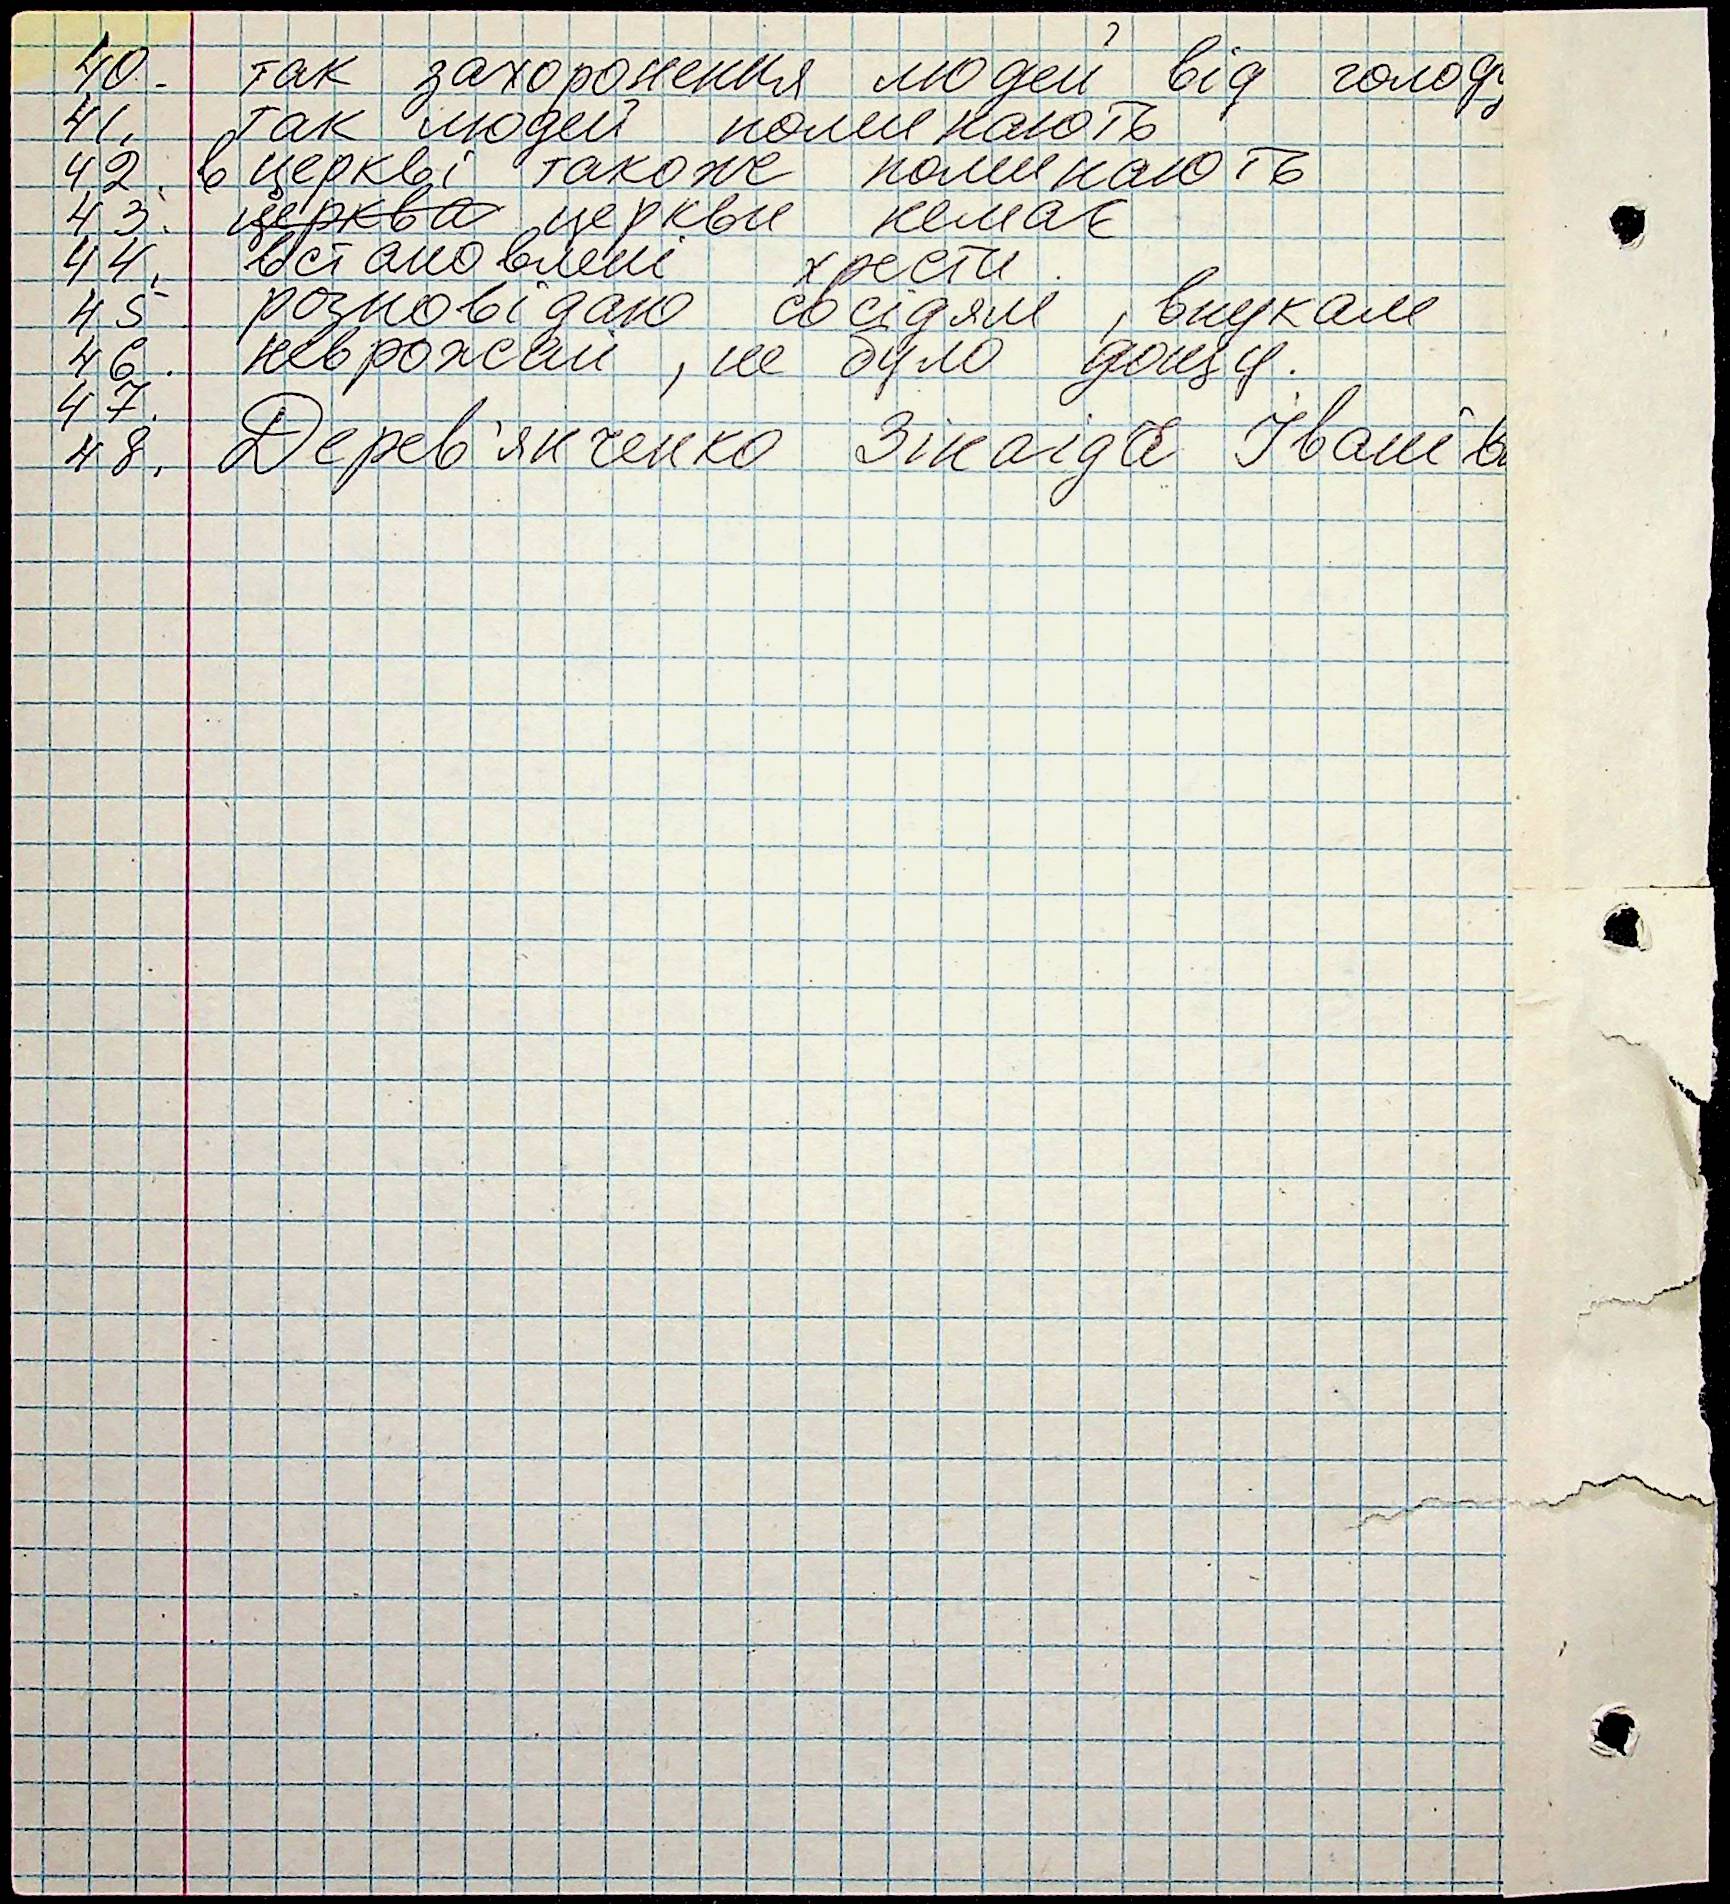 40. так захоронення людей від голоду
41. так людей поминають
42. в церкві також поминають
43. церква церкви немає
44. встановлені хрести.
45. розповідаю сосідям, внукам
46. неврожай, не було дощу.
47.
48. Дерев'янченко Зінаіда Іванів